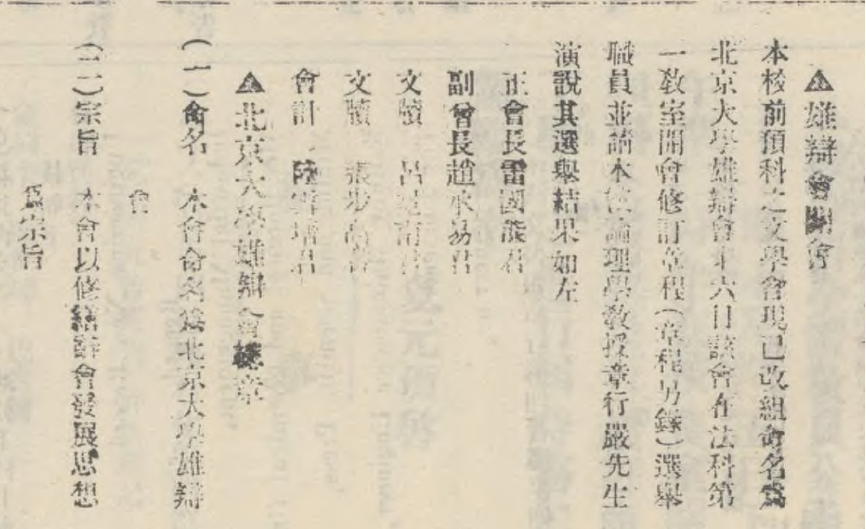 ▲雄辯會開會
本校前預科之文學會現已改組命名爲
北京大學雄辯會十六日該會在法科第
一教室開會修訂章程(章程另錄)選舉
職員並請本校論理學教授章行嚴先生
演說其選舉結果如左
正會長雷國能君
副會長趙承易君
文牘 呂 君
文牘 張 君
會計 陸 君
▲北京大學雄辯會 章
(一)命名 本會命名爲北京大學雄辯
會
(二)宗旨 本會以修繕辭會發展思想
爲宗旨